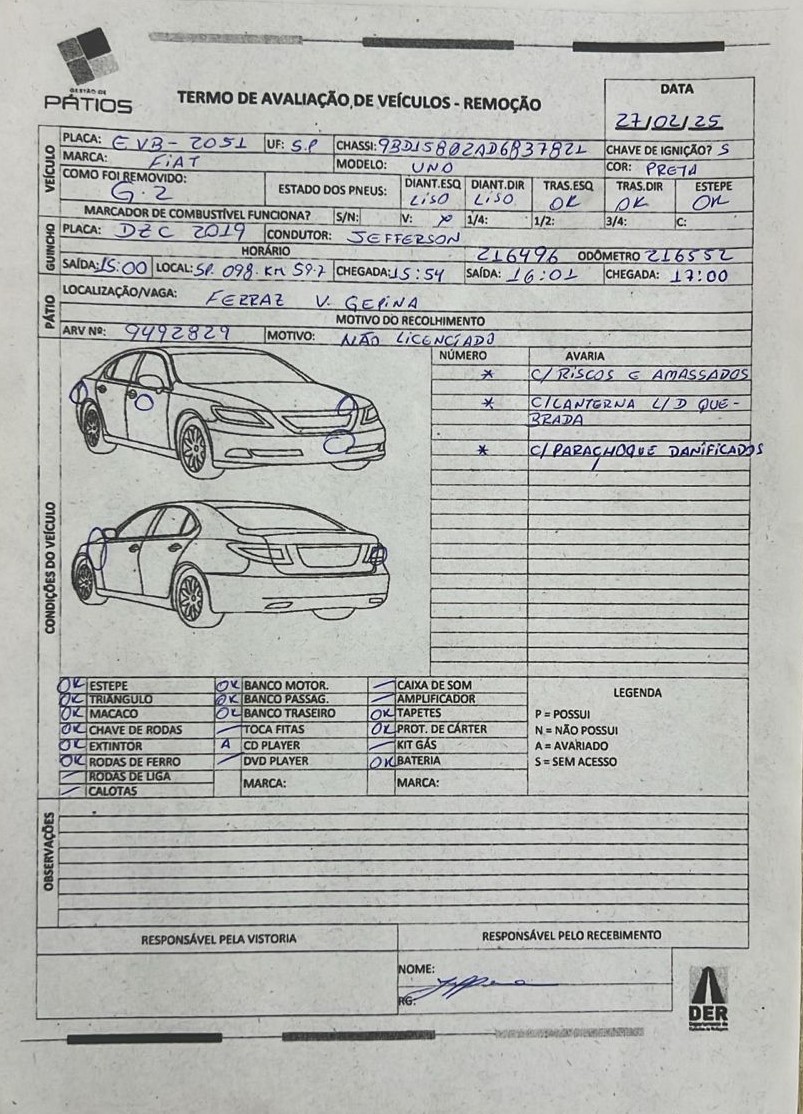 GESTÃO DE
PÁTIOS
TERMO DE AVALIAÇÃO DE VEÍCULOS - REMOÇÃO
DATA
27/02/25
VEÍCULO
PLACA: EVB-2051 UF: S.P CHASSI: 9BD15802AD6837821 CHAVE DE IGNIÇÃO? S
MARCA: FIAT MODELO: UNO COR: PRETA
COMO FOI REMOVIDO: G.2 ESTADO DOS PNEUS: DIANT.ESQ LISO DIANT.DIR LISO TRAS.ESQ OK TRAS.DIR OK ESTEPE OK
MARCADOR DE COMBUSTÍVEL FUNCIONA? S/N: V: 1/4: 1/2: 3/4: C:
GUINCHO
PLACA: DZC 2019 CONDUTOR: JEFFERSON
HORÁRIO 216496 ODÔMETRO 216552
SAÍDA: 15:00 LOCAL: SP. 098. KM 59.7 CHEGADA: 15:54 SAÍDA: 16:01 CHEGADA: 17:00
PÁTIO
LOCALIZAÇÃO/VAGA: FERRAZ V. GEPINA
MOTIVO DO RECOLHIMENTO
ARV Nº: 9492829 MOTIVO: NÃO LICENCIADO
CONDIÇÕES DO VEÍCULO
NÚMERO AVARIA
* C/ RISCOS E AMASSADOS
* C/ LANTERNA L/D QUE-
BRADA
* C/ PARACHOQUE DANIFICADOS
OK ESTEPE OK BANCO MOTOR. — CAIXA DE SOM
OK TRIÂNGULO OK BANCO PASSAG. — AMPLIFICADOR
OK MACACO OK BANCO TRASEIRO OK TAPETES
OK CHAVE DE RODAS — TOCA FITAS OK PROT. DE CÁRTER
OK EXTINTOR A CD PLAYER — KIT GÁS
OK RODAS DE FERRO — DVD PLAYER OK BATERIA
— RODAS DE LIGA MARCA: MARCA:
— CALOTAS
LEGENDA
P = POSSUI
N = NÃO POSSUI
A = AVARIADO
S = SEM ACESSO
OBSERVAÇÕES
RESPONSÁVEL PELA VISTORIA RESPONSÁVEL PELO RECEBIMENTO
NOME:
RG:
DER